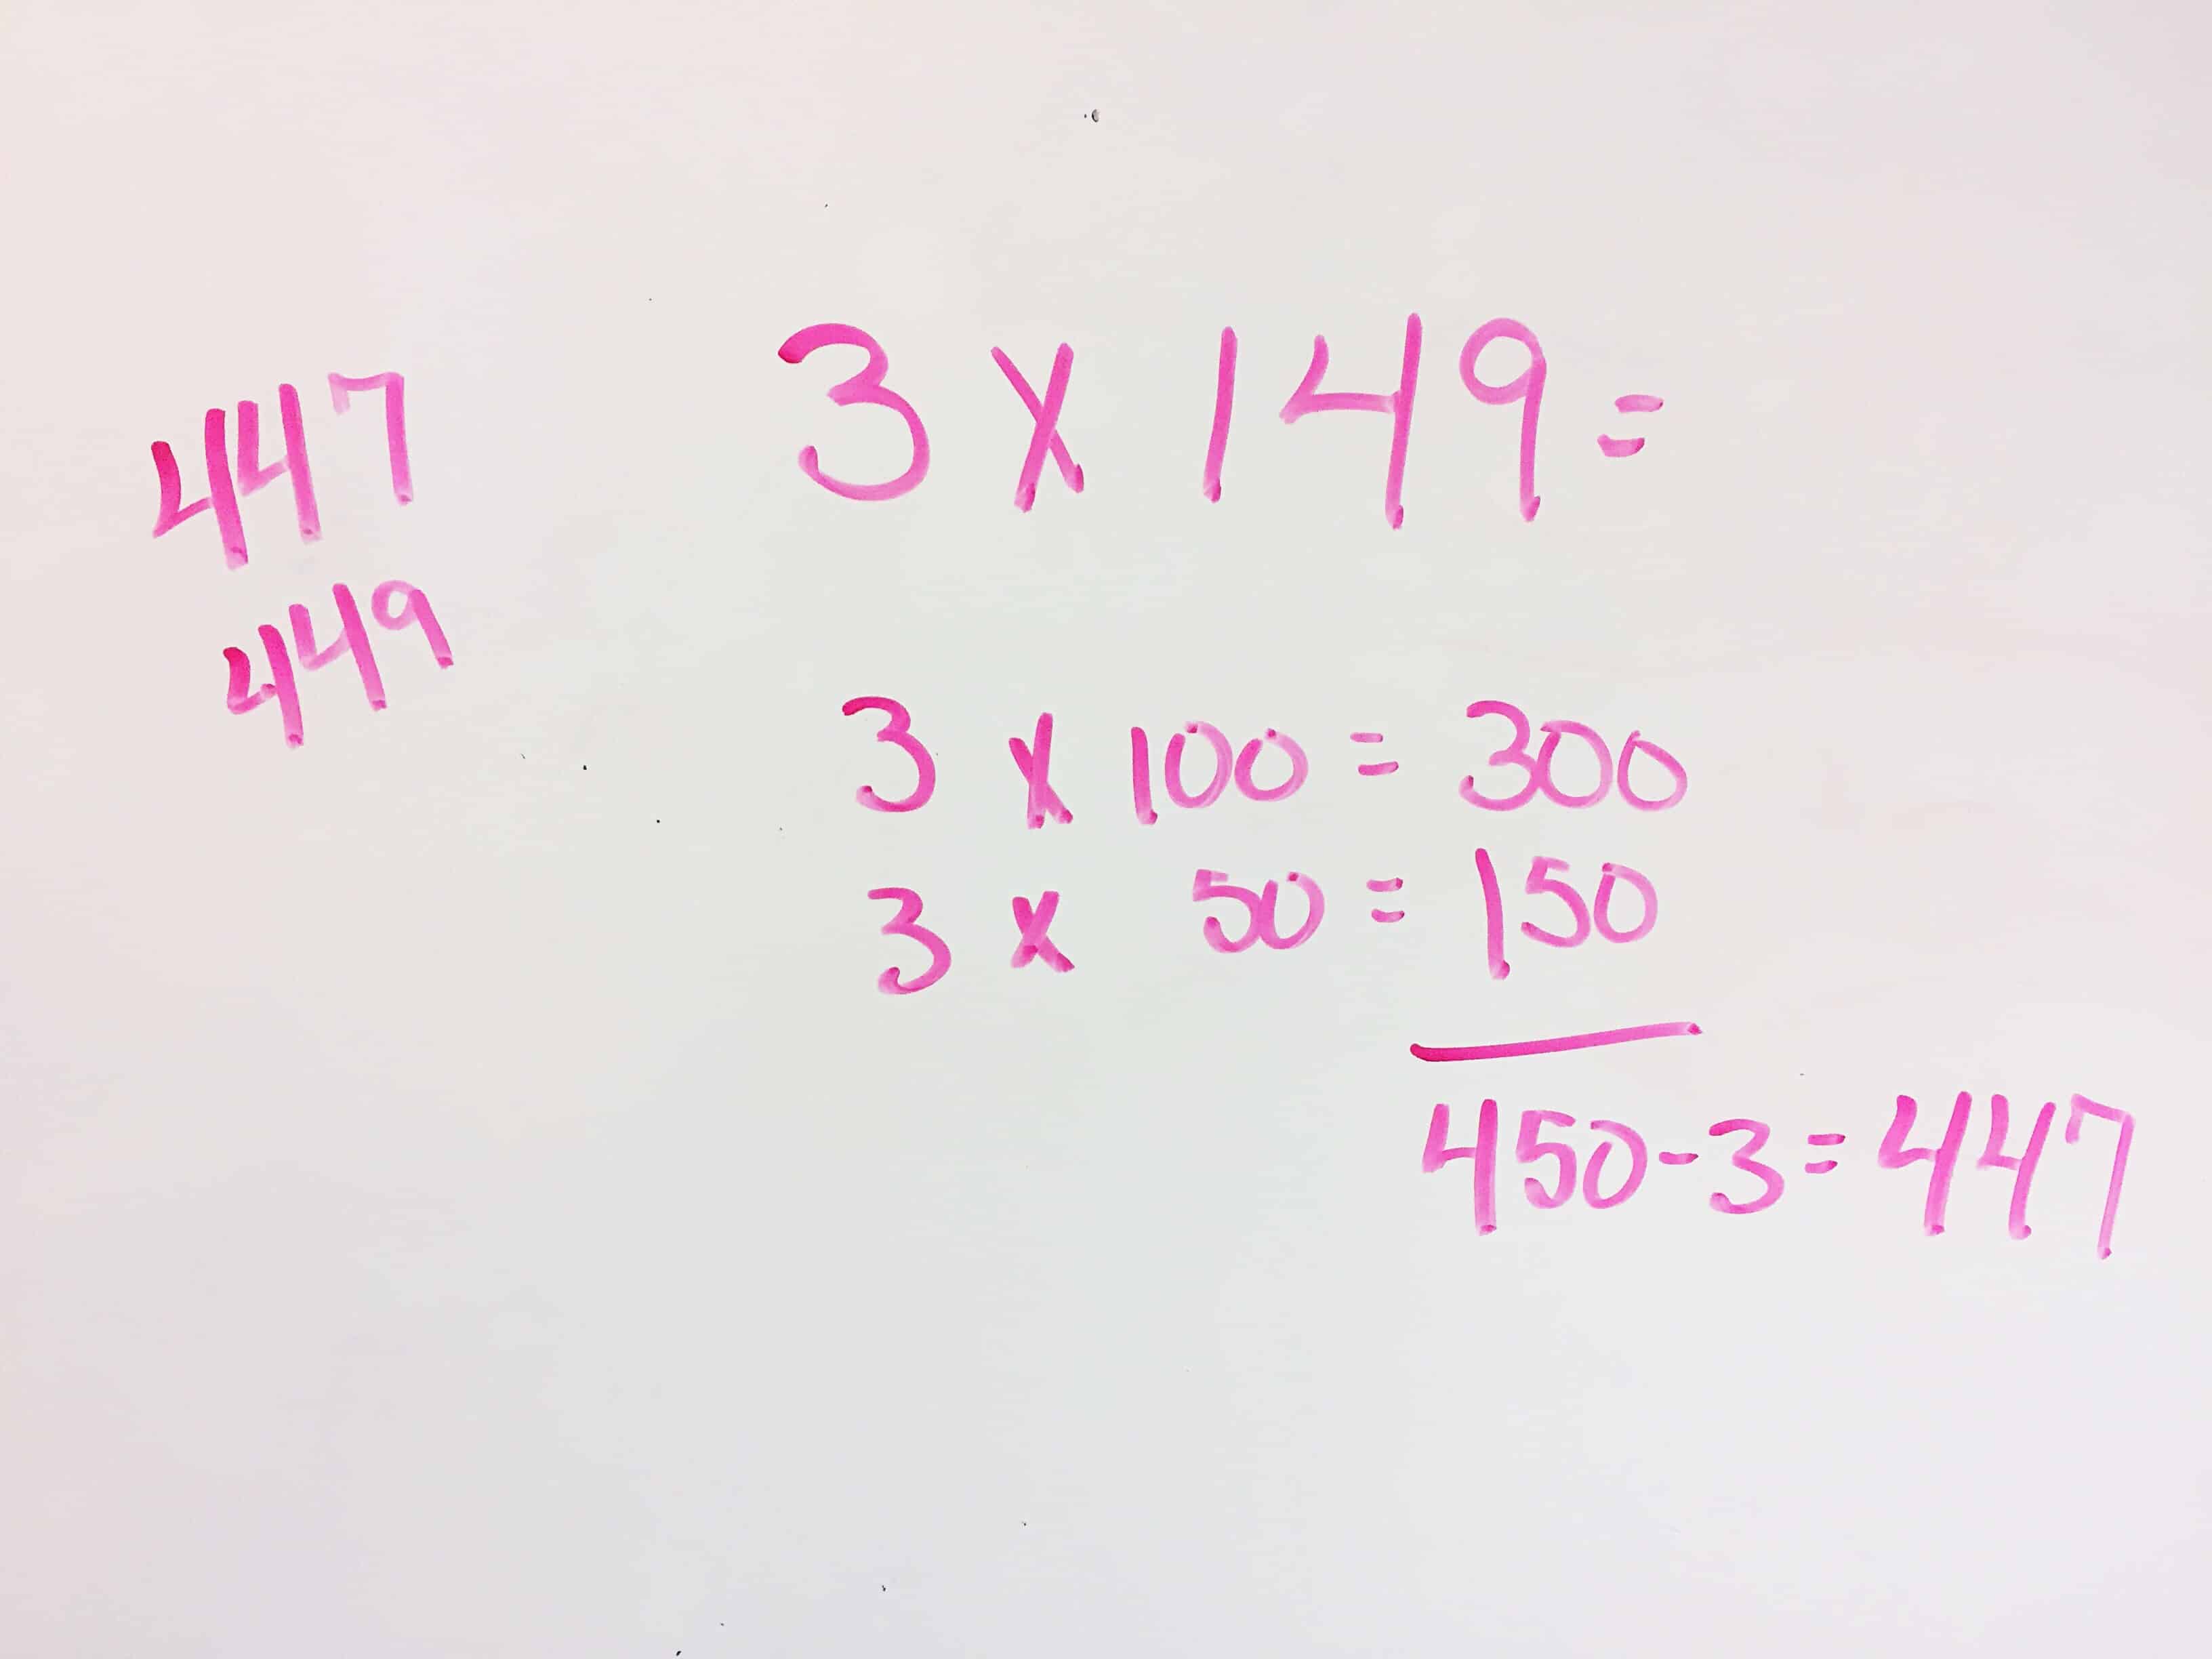 447
449
3 x 149 =
3 x 100 = 300
3 x 50 = 150
450 - 3 = 447